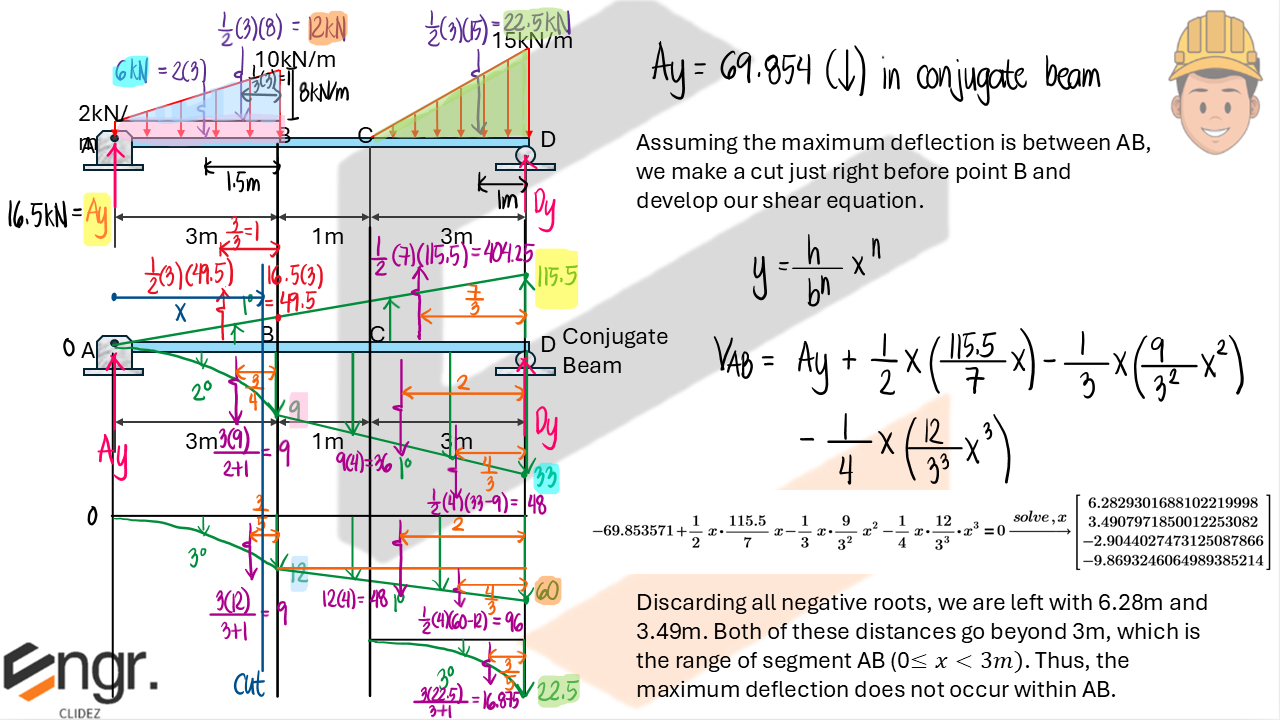 ½(3)(8) = 12kN
½(3)(15) = 22.5kN
15kN/m
6kN = 2(3)
10kN/m
⅓(3)=1
8kN/m
2kN/
m
A
B
C
D
1.5m
1m
16.5kN = Ay
Dy
3m
1m
3m
3/3=1
½(7)(115.5)=404.25
½(3)(49.5)
16.5(3)
= 49.5
115.5
x
1°
7/3
0
A
B
C
D
Conjugate
Beam
2°
3/4
9
2
Ay
3m
1m
3m
Dy
3(9)/2+1 = 9
9(4)=36
1°
4/3
33
½(4)(33-9) = 48
0
3/5
2
3°
12
3(12)/3+1 = 9
12(4)=48
1°
4/3
60
½(4)(60-12)=96
3°
3/5
cut
3(22.5)/3+1 = 16.875
22.5
Engr.
CLIDEZ
Ay = 69.854 (↓) in conjugate beam
Assuming the maximum deflection is between AB,
we make a cut just right before point B and
develop our shear equation.
y = h/bⁿ xⁿ
VAB = Ay + ½ x (115.5/7 x) - ⅓ x (9/3² x²)
- ¼ x (12/3³ x³)
−69.853571+½ x·115.5/7 x−⅓ x·9/3² x²−¼ x·12/3³·x³=0 solve,x → [6.2829301688102219998
3.4907971850012253082
−2.9044027473125087866
−9.8693246064989385214]
Discarding all negative roots, we are left with 6.28m and
3.49m. Both of these distances go beyond 3m, which is
the range of segment AB (0≤ x < 3m). Thus, the
maximum deflection does not occur within AB.